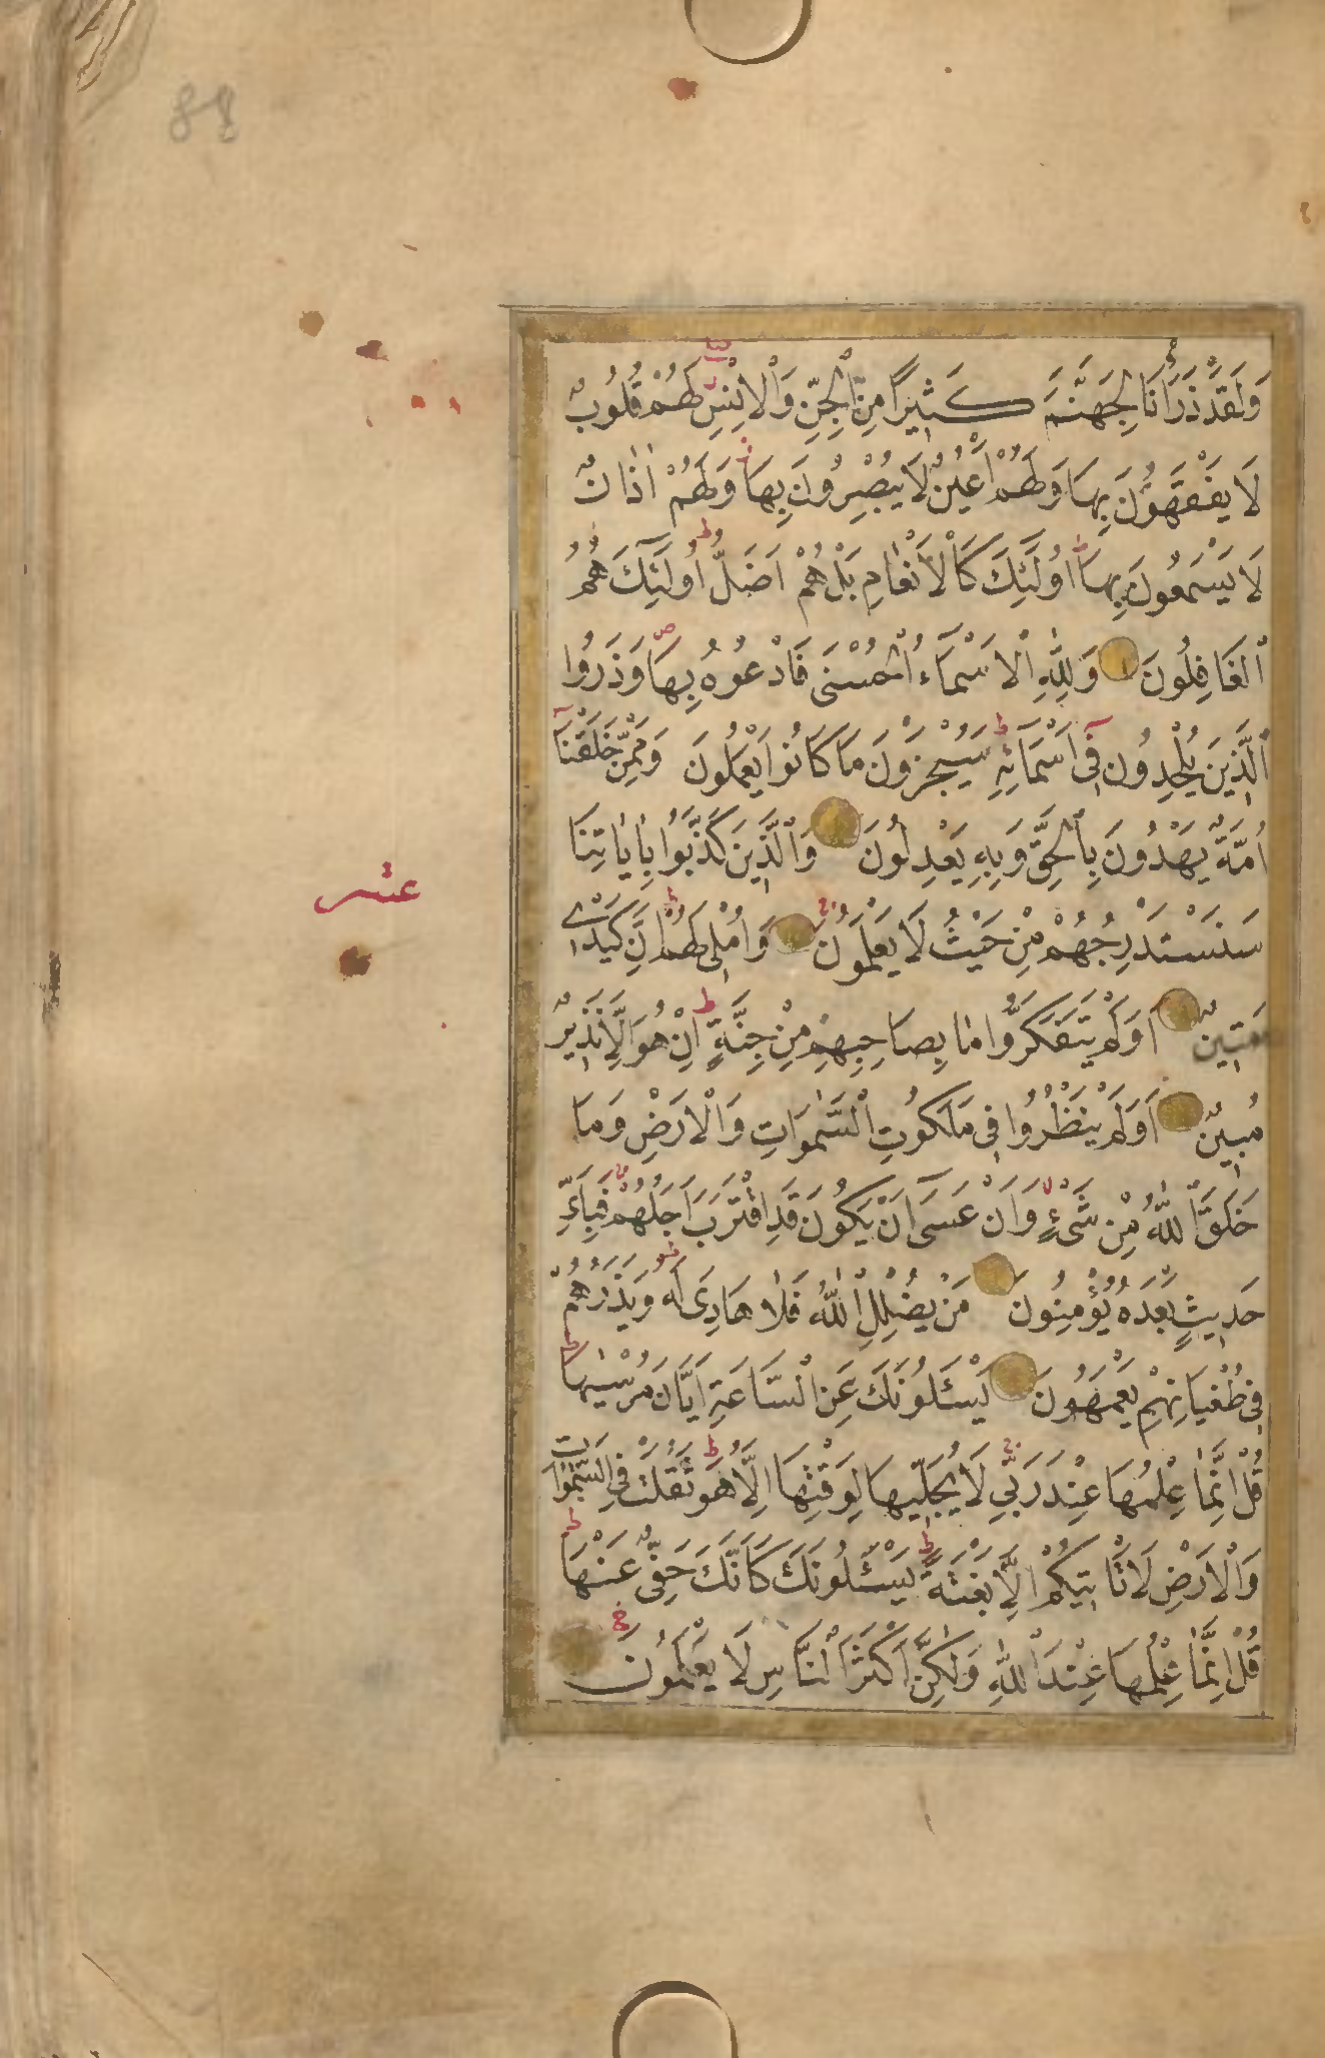 88
وَلَقَدْ ذَرَأْنَا لِجَهَنَّمَ كَثِيرًا مِنَ ٱلْجِنِّ وَٱلْاِنْسِ لَهُمْ قُلُوبٌ
لَا يَفْقَهُونَ بِهَا وَلَهُمْ اَعْيُنٌ لَا يُبْصِرُونَ بِهَا وَلَهُمْ اٰذَانٌ
لَا يَسْمَعُونَ بِهَا اُولَٓئِكَ كَالْاَنْعَامِ بَلْ هُمْ اَضَلُّ اُولَٓئِكَ هُمُ
ٱلْغَافِلُونَ وَلِلّٰهِ ٱلْاَسْمَٓاءُ ٱلْحُسْنَى فَادْعُوهُ بِهَا وَذَرُوا
ٱلَّذِينَ يُلْحِدُونَ فِى اَسْمَٓائِهِ سَيُجْزَوْنَ مَا كَانُوا يَعْمَلُونَ وَمِمَّنْ خَلَقْنَا
اُمَّةٌ يَهْدُونَ بِٱلْحَقِّ وَبِهِ يَعْدِلُونَ وَٱلَّذِينَ كَذَّبُوا بِاٰيَاتِنَا
سَنَسْتَدْرِجُهُمْ مِنْ حَيْثُ لَا يَعْلَمُونَ وَاُمْلِى لَهُمْ اِنَّ كَيْدِى
عشر
مَتِينٌ اَوَلَمْ يَتَفَكَّرُوا مَا بِصَاحِبِهِمْ مِنْ جِنَّةٍ اِنْ هُوَ اِلَّا نَذِيرٌ
مُبِينٌ اَوَلَمْ يَنْظُرُوا فِى مَلَكُوتِ ٱلسَّمٰوَاتِ وَٱلْاَرْضِ وَمَا
خَلَقَ ٱللّٰهُ مِنْ شَىْءٍ وَاَنْ عَسَٓى اَنْ يَكُونَ قَدِ اقْتَرَبَ اَجَلُهُمْ فَبِاَىِّ
حَدِيثٍ بَعْدَهُ يُؤْمِنُونَ مَنْ يُضْلِلِ ٱللّٰهُ فَلَا هَادِىَ لَهُ وَيَذَرُهُمْ
فِى طُغْيَانِهِمْ يَعْمَهُونَ يَسْئَلُونَكَ عَنِ ٱلسَّاعَةِ اَيَّانَ مُرْسٰيهَا
قُلْ اِنَّمَا عِلْمُهَا عِنْدَ رَبِّى لَا يُجَلِّيهَا لِوَقْتِهَا اِلَّا هُوَ ثَقُلَتْ فِى ٱلسَّمٰوَاتِ
وَٱلْاَرْضِ لَا تَأْتِيكُمْ اِلَّا بَغْتَةً يَسْئَلُونَكَ كَاَنَّكَ حَفِىٌّ عَنْهَا
قُلْ اِنَّمَا عِلْمُهَا عِنْدَ ٱللّٰهِ وَلٰكِنَّ اَكْثَرَ ٱلنَّاسِ لَا يَعْلَمُونَ